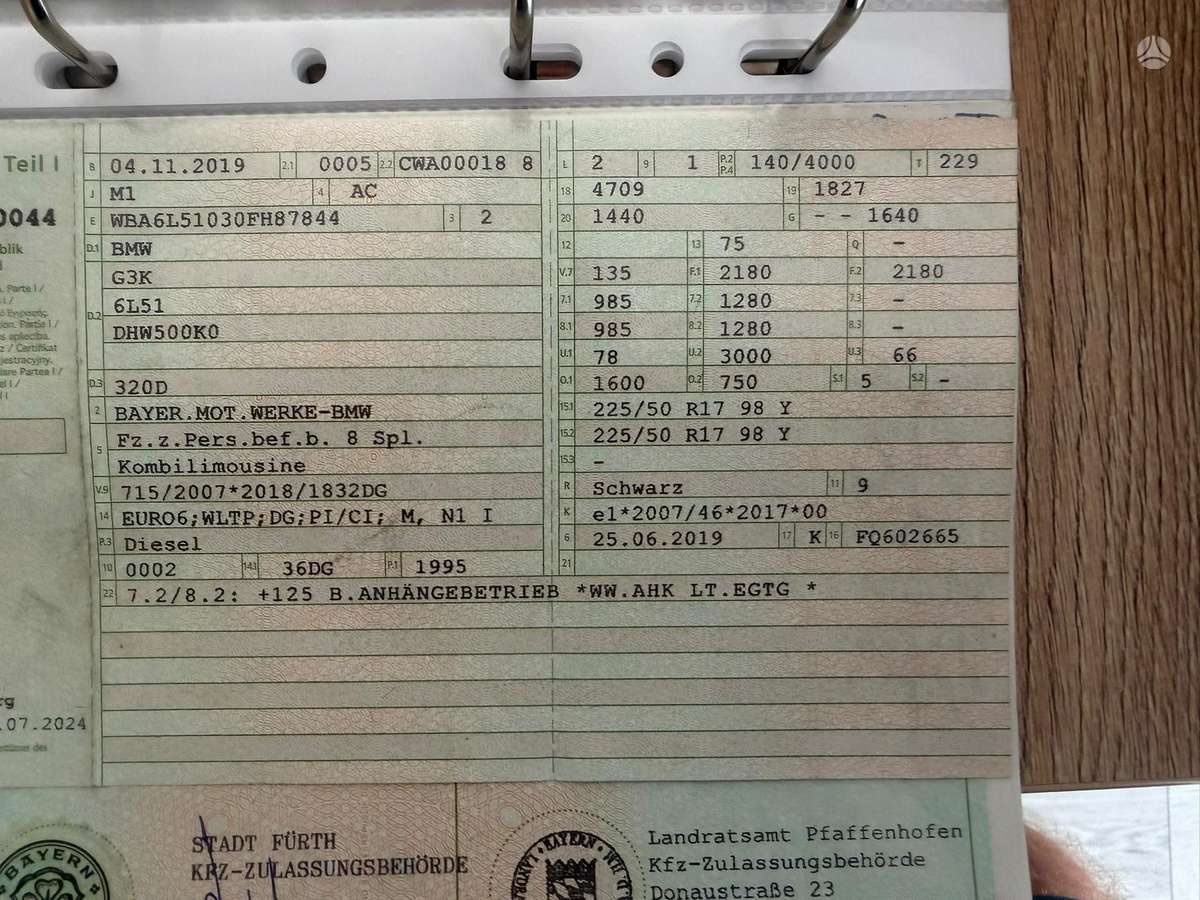 Teil I
0044
blik
B 04.11.2019 2.1 0005 2.2 CWA00018 8
J M1 4 AC
E WBA6L51030FH87844 3 2
D.1 BMW
G3K
D.2 6L51
DHW500K0
D.3 320D
2 BAYER.MOT.WERKE-BMW
5 Fz.z.Pers.bef.b. 8 Spl.
Kombilimousine
V.9 715/2007*2018/1832DG
14 EURO6;WLTP;DG;PI/CI; M, N1 I
P.3 Diesel
10 0002 14.1 36DG P.1 1995
L 2 9 1 P.2 P.4 140/4000 T 229
18 4709 19 1827
20 1440 G - - 1640
12 13 75 Q -
V.7 135 F.1 2180 F.2 2180
7.1 985 7.2 1280 7.3 -
8.1 985 8.2 1280 8.3 -
U.1 78 U.2 3000 U.3 66
O.1 1600 O.2 750 S.1 5 S.2 -
15.1 225/50 R17 98 Y
15.2 225/50 R17 98 Y
15.3 -
R Schwarz 11 9
K e1*2007/46*2017*00
6 25.06.2019 17 K 16 FQ602665
21
22 7.2/8.2: +125 B.ANHÄNGEBETRIEB *WW.AHK LT.EGTG *
rg
.07.2024
BAYERN
STADT FÜRTH
KFZ-ZULASSUNGSBEHÖRDE
BAYERN
Landratsamt Pfaffenhofen
Kfz-Zulassungsbehörde
Donaustraße 23